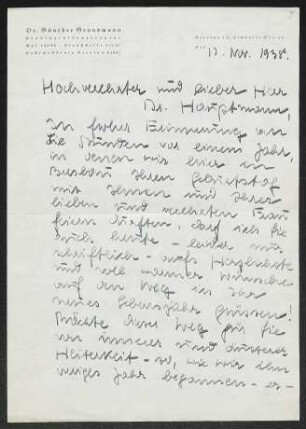 Dr. Günther Grundmann
13. Nov. 1938.
Hochverehrter und lieber Herr
Dr. Hauptmann,
In froher Erinnerung an
die Stunden vor einem Jahr,
in denen wir hier in
Breslau Ihren Geburtstag
mit Ihnen und Ihrer
lieben und verehrten Frau
feiern durften, darf ich Sie
auch heute – leider nur
schriftlich – aufs Herzlichste
und voll warmer Wünsche
auf den Weg in Ihr
neues Lebensjahr grüssen!
Möchte dieser Weg für Sie
von innerer und äusserer
Heiterkeit – so, wie wir Ihr
voriges Jahr begannen – er-